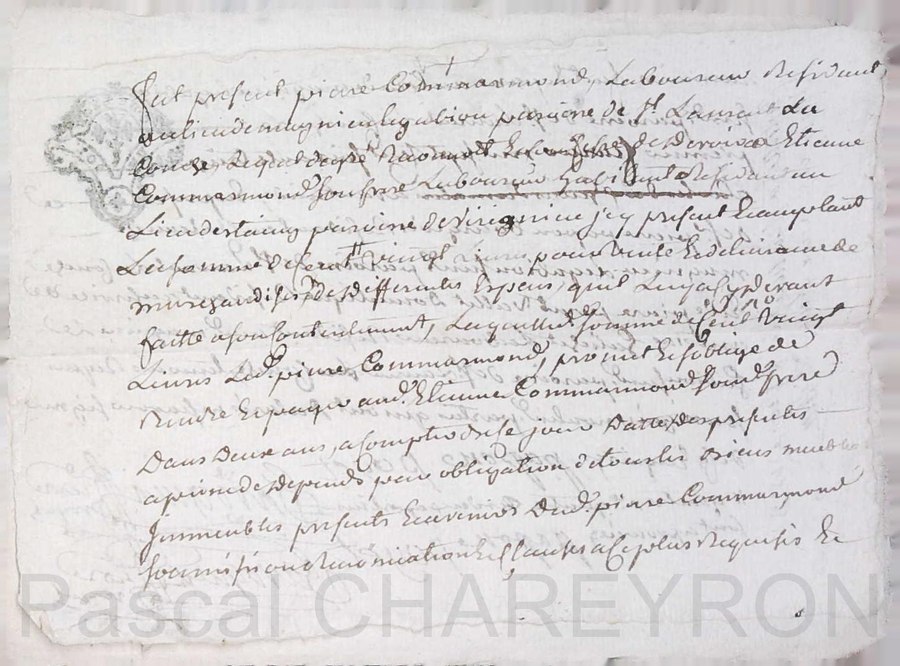 fut present pierre Commarmond, Laboureur Residant
au lieu de magnieu legabion paroisse de St Laurent La
Conche Lequel de gre Reconnoit Et Confesse devoir a Etienne
Commarmond son frere Laboureur habitant Residant au
Lieu destaing paroisse de virignieu jcy present Et acceptant
La somme de Cent vingt livres pour vente Et delivrance de
marchandises de differentes Especes, quil Luy a cy devant
faitte a son Contentement, Laquelle d. somme de Cent vingt
Livres Led. pierre Commarmond, promet Et soblige de
Rendre Et payer aud. Etienne Commarmond sond. frere
Dans Deux ans, a Compter de Ce jour Datte des presentes
a peine de depends par obligation de tous les Biens meubles
Immeubles presents Et avenir Dud. pierre Commarmond
soumission Renonciation Et Clauses a Ce plus Requises Et
Pascal CHAREYRON